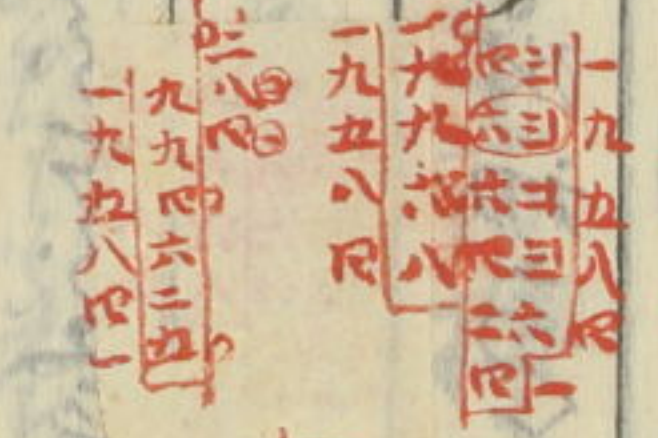 一九五八四
三三二三六一
四六六四二四
一九九六八
一九五八四
二八四
九九四六二五
一九五八四一